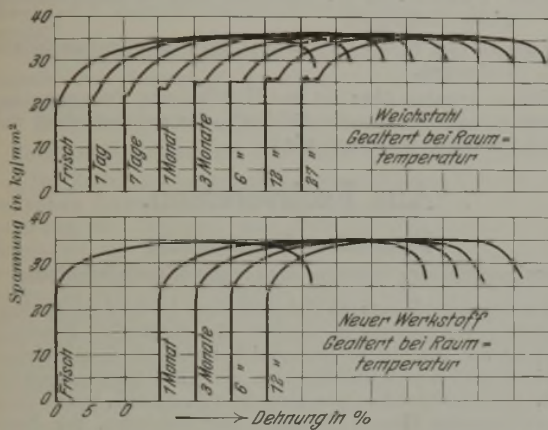 Spannung in kg/mm²
40
30
20
10
0
Frisch
1 Tag
7 Tage
1 Monat
3 Monate
6 "
12 "
27 "
Weichstahl
Gealtert bei Raum=
temperatur
40
30
20
10
0
Frisch
1 Monat
3 Monate
6 "
12 "
Neuer Werkstoff
Gealtert bei Raum=
temperatur
0 5 0
Dehnung in %